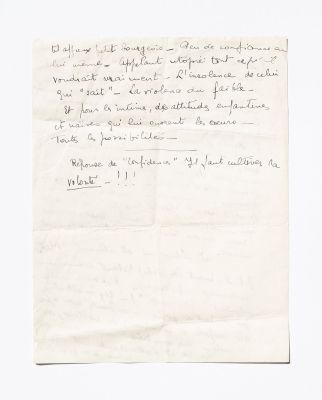 et affreux petit bourgeois - Peu de confiance en
lui même - Appelant utopie tout ce qu'il
voudrait vraiment - L'insolence de celui
qui "sait" - La violence du faible -
Et pour les intimes, des attitudes enfantines
et naïves qui lui ouvrent les cœurs -
Toutes les possibilités -
Réponse de "Confidences" Il faut cultiver la
volonté - !!!